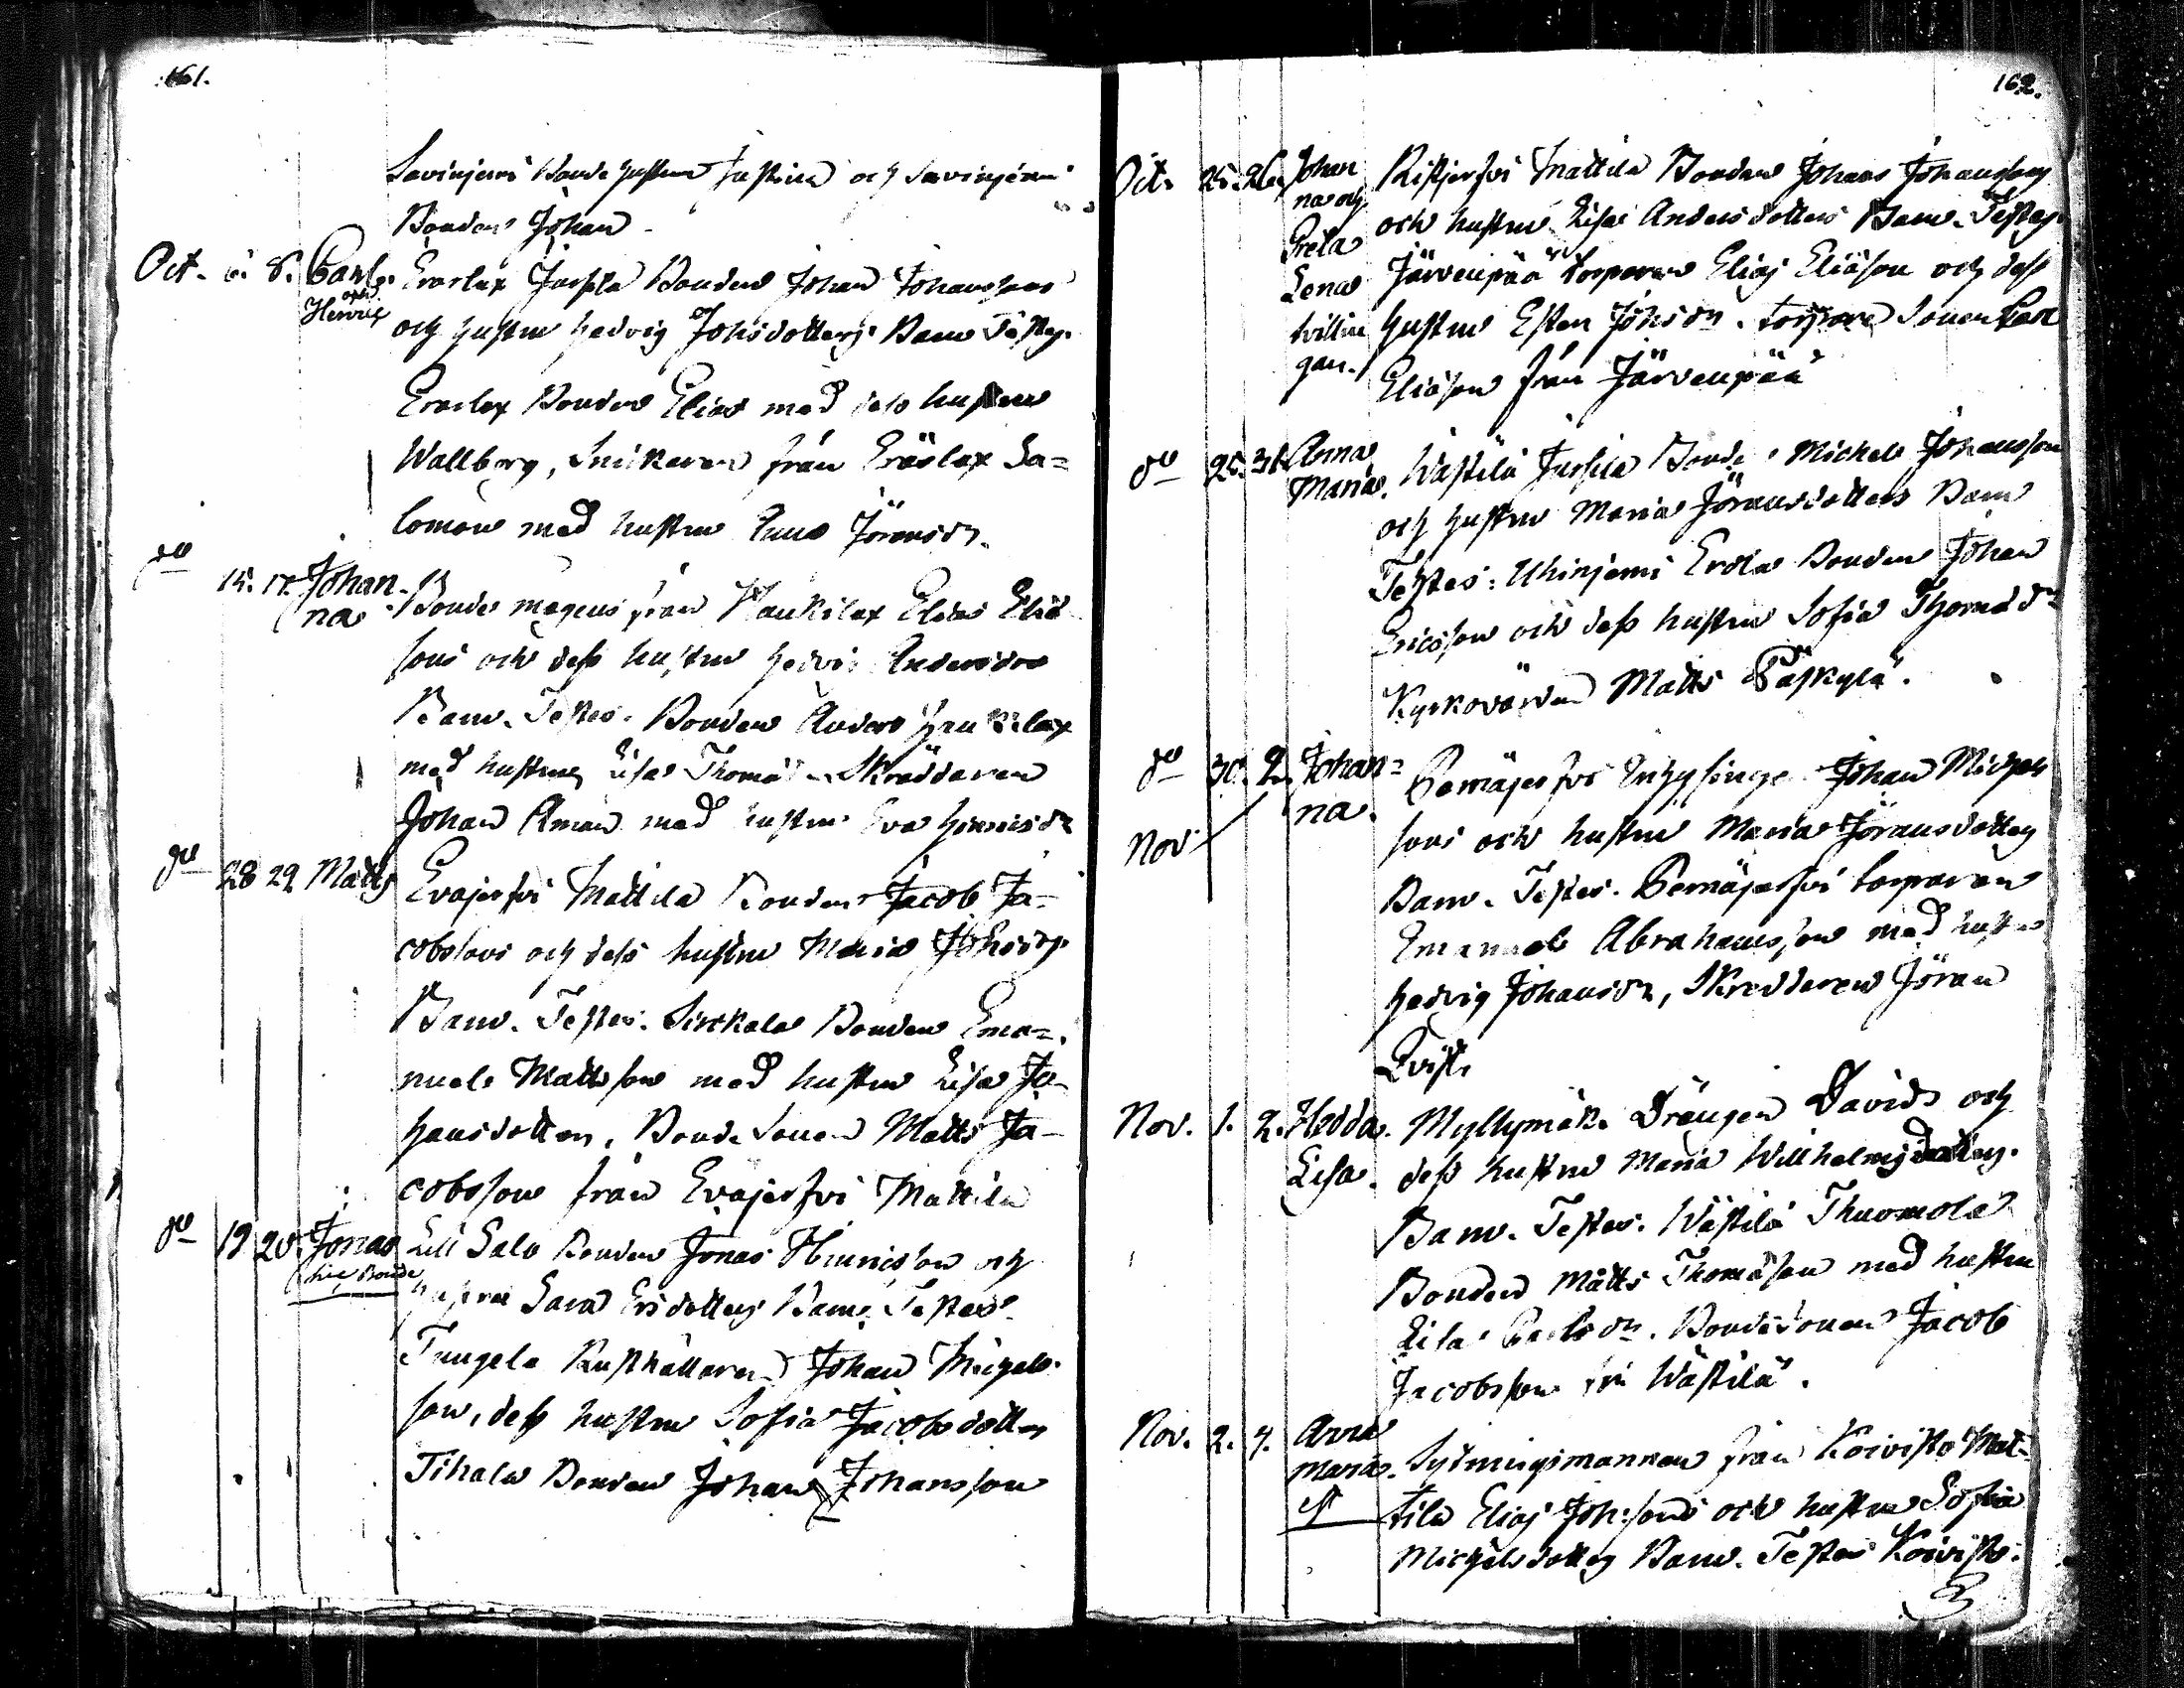 161.
Savinjemi Bonde hustrun Justina och Savinjemi
Bonden Johan
Oct. 6. 8. Carl Eraslax Jussila Bonden Johan Johanssons
och Henric och hustru Hedvig Johsdotters Barn Testes.
Eraslax Bonden Elias med dess hustru
Wallborg, Snickaren från Eräslax Sa=
lomon med hustru Anna Jöransdr.
do 15. 17. Johan-
na. Bonde mågens från Haukilax Elias Eliæ
sons och dess hustru Hedvig Andersdrs
Barn. Testes. Bonden Anders Haukilax
med hustru Lisa Thomæd. Skräddaren
Johan Åman med hustru Eva Hinricsdr
do 28 29 Matts Evajerfvi Mattila Bonden Jacob Ja-
cobssons och dess hustru Maria Johsdrs
Barn. Testes. Sirckala Bonden Ema=
nuel Mattsson med hustru Lisa Jo-
hansdotter, Bonde Sonen Matts Ja-
cobsson från Evajerfvi Mattila
do 19 20. Jonas Lill Salo Bonden Jonas Hinricsson och
hustru Sara Ersdotters Barn. Testes.
Tungela Rusthållaren Johan Michels-
son, dess hustru Sofia Jacobsdotter
Tihala Bonden Johan Johansson
162.
Oct. 25. 26. Johan Ristjerfvi Mattila Bonden Johans Johansons
na och och hustru Lisa Andersdotters Barn. Testes.
Greta Järvenpää torparen Elias Eliæson och dess
Lena hustru Ester Johsdr. torpare Sonen Carl
tvillin
gar. Eliæson från Järvenpää
do 25. 31. Anna Wästilä Jussila Bonde Michel Johansson
Maria. och hustru Maria Jöransdotters Barn
Testes: Uhinjemi Erola Bonden Johan
Ericsson och dess hustru Sofia Thomædr
Kyrkovärden Matts Päskylä.
do 30. 2. Johan=
na. Pemäjerfvi Johan Michels
Nov sons och hustru Maria Jöransdotters
Barn. Testes. Pemäjerfvi torparen
Emanuel Abrahamsson med hustru
Hedvig Johansdr, Skreddaren Jöran
Qvist.
Nov. 1. 2. Hedda. Myllymäki Drängen Davids och
Lisa. dess hustru Maria Willhelmsdotters.
Barn. Testes. Wästilä Thuomola
Bonden Matts Thomæson med hustru
Lisa Carlsdr. Bondesonen Jacob
Jacobsson frn Wästilä.
Nov. 2. 4. Anna
Maria. Sytningsmannen från Koivisto Mat-
tila Elias Johssons och hustru Sofia
Michelsdotters Barn. Testes Koivisto.